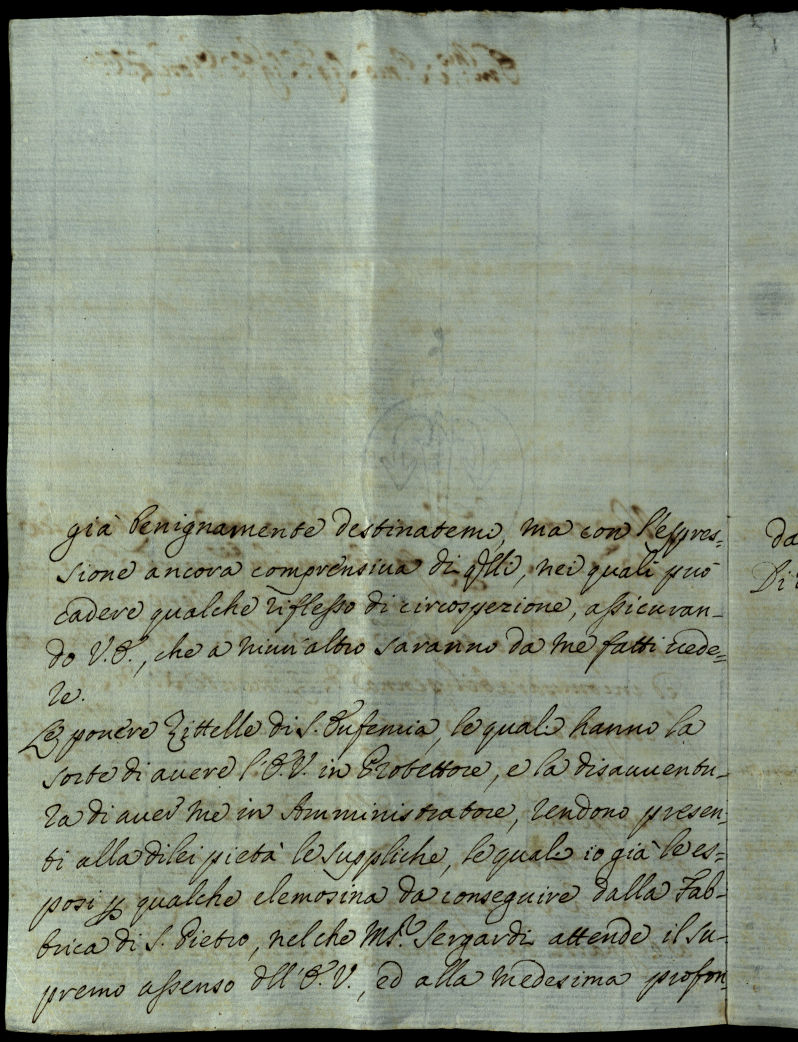 già benignamente destinatemi, ma con l'espres=
sione ancora comprensiva di qlli, nei quali può
cadere qualche riflesso di circospezione, assicuran-
do V.E., che a niun'altro saranno da me fatti vede=
re.
Le povere Zittelle di S. Eufemia, le quali hanno la
sorte di avere l'E.V. in Protettore, e la disavventu-
ra di aver me in Amministratore, rendono presen-
ti alla di lei pietà le suppliche, le quali io già le es=
posi p qualche elemosina da conseguire dalla Fab-
brica di S. Pietro, nel che Msr. Sergardi attende il su-
premo assenso dll'E.V., ed alla medesima profon-
da